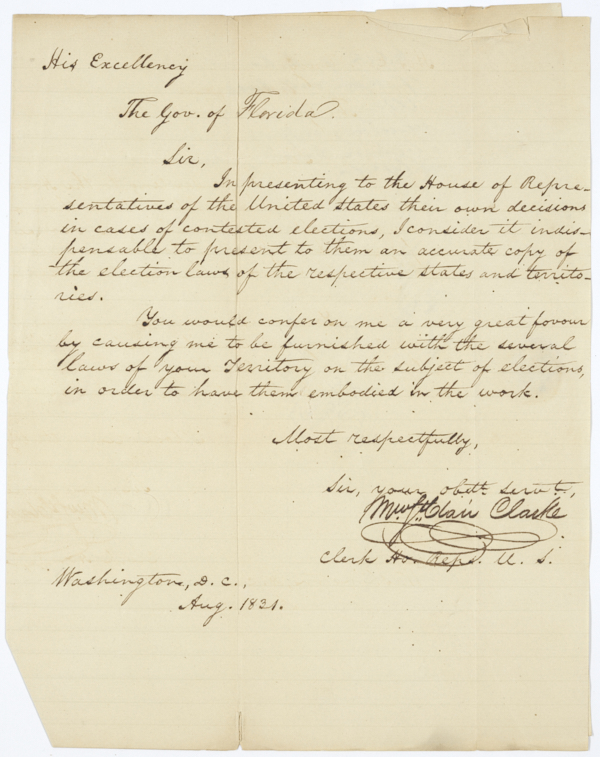 His Excellency
The Gov. of Florida.
Sir,
In presenting to the House of Repre-
sentatives of the United States their own decisions
in cases of contested elections, I consider it indis-
pensable to present to them an accurate copy of
the election laws of the respective states and territo-
ries.
You would confer on me a very great favour
by causing me to be furnished with the several
laws of your Territory on the subject of elections,
in order to have them embodied in the work.
Most respectfully,
Sir, your obdt. servt.,
Mw St Clair Clarke
Clerk Ho. Reps. U. S.
Washington, D. C.,
Aug. 1831.